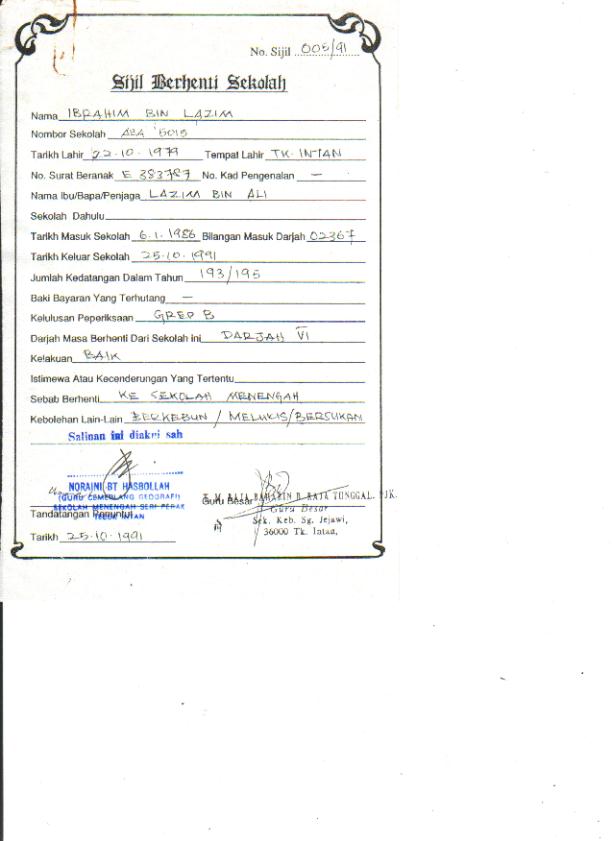 No. Sijil 005/91
Sijil Berhenti Sekolah
Nama IBRAHIM BIN LAZIM
Nombor Sekolah ABA 5015
Tarikh Lahir 22-10-1979 Tempat Lahir TK. INTAN
No. Surat Beranak E 383787 No. Kad Pengenalan —
Nama Ibu/Bapa/Penjaga LAZIM BIN ALI
Sekolah Dahulu
Tarikh Masuk Sekolah 6.1.1986 Bilangan Masuk Darjah 02367
Tarikh Keluar Sekolah 25-10-1991
Jumlah Kedatangan Dalam Tahun 193/195
Baki Bayaran Yang Terhutang —
Kelulusan Peperiksaan GRED B
Darjah Masa Berhenti Dari Sekolah ini DARJAH VI
Kelakuan BAIK
Istimewa Atau Kecenderungan Yang Tertentu
Sebab Berhenti KE SEKOLAH MENENGAH
Kebolehan Lain-Lain BERKEBUN / MELUKIS/BERSUKAN
Salinan ini diakui sah
NORAINI BT HASBOLLAH
(GURU CEMERLANG GEOGRAFI)
SEKOLAH MENENGAH SERI PERAK
TELUK INTAN
Tandatangan
Guru Besar
RAJA BAHARIN B. RAJA TUNGGAL. PJK.
Guru Besar
Sek. Keb. Sg. Jejawi,
36000 Tk. Intan,
Tarikh 25-10-1991